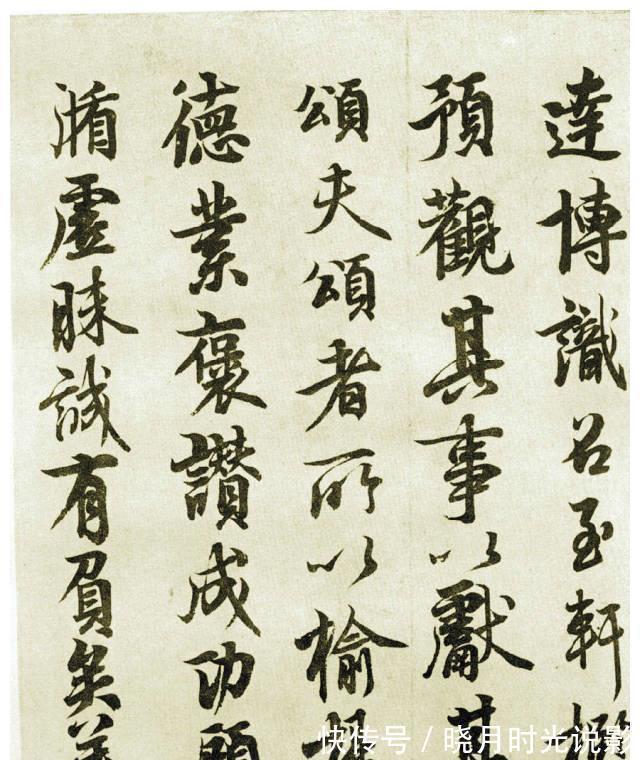 達博識召至軒
預觀其事以獻其
頌夫頌者所以揄
德業褒讚成功顧
循虛昧誠有負矣美
快传号 / 晓月时光说影